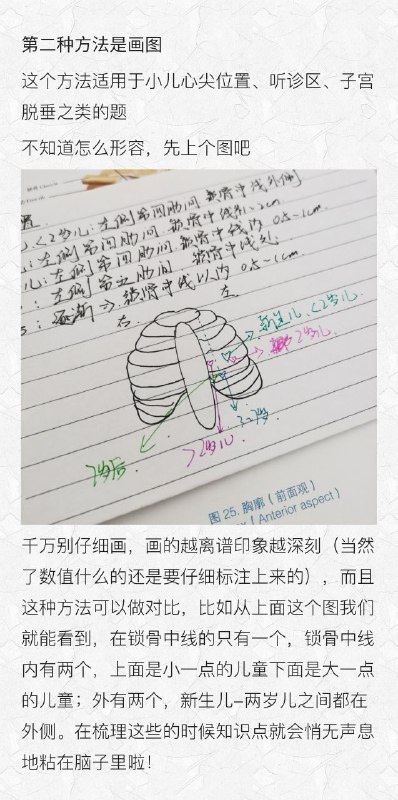 第二种方法是画图
这个方法适用于小儿心尖位置、听诊区、子宫
脱垂之类的题
不知道怎么形容，先上个图吧
<2岁儿：左侧第四肋间 锁骨中线外侧
左侧第四肋间 锁骨中线外1~2cm
儿：左侧第四肋间 锁骨中线内 0.5~1cm
：左侧第五肋间 锁骨中线处
：逐渐→锁骨中线以内 0.5~1cm
右 左
新生儿、<2岁儿
2岁儿
3-7岁
7岁后
>2岁儿
图 25. 胸廓（前面观）
(Anterior aspect)
千万别仔细画，画的越离谱印象越深刻（当然
了数值什么的还是要仔细标注上来的），而且
这种方法可以做对比，比如从上面这个图我们
就能看到，在锁骨中线的只有一个，锁骨中线
内有两个，上面是小一点的儿童下面是大一点
的儿童；外有两个，新生儿-两岁儿之间都在
外侧。在梳理这些的时候知识点就会悄无声息
地粘在脑子里啦！